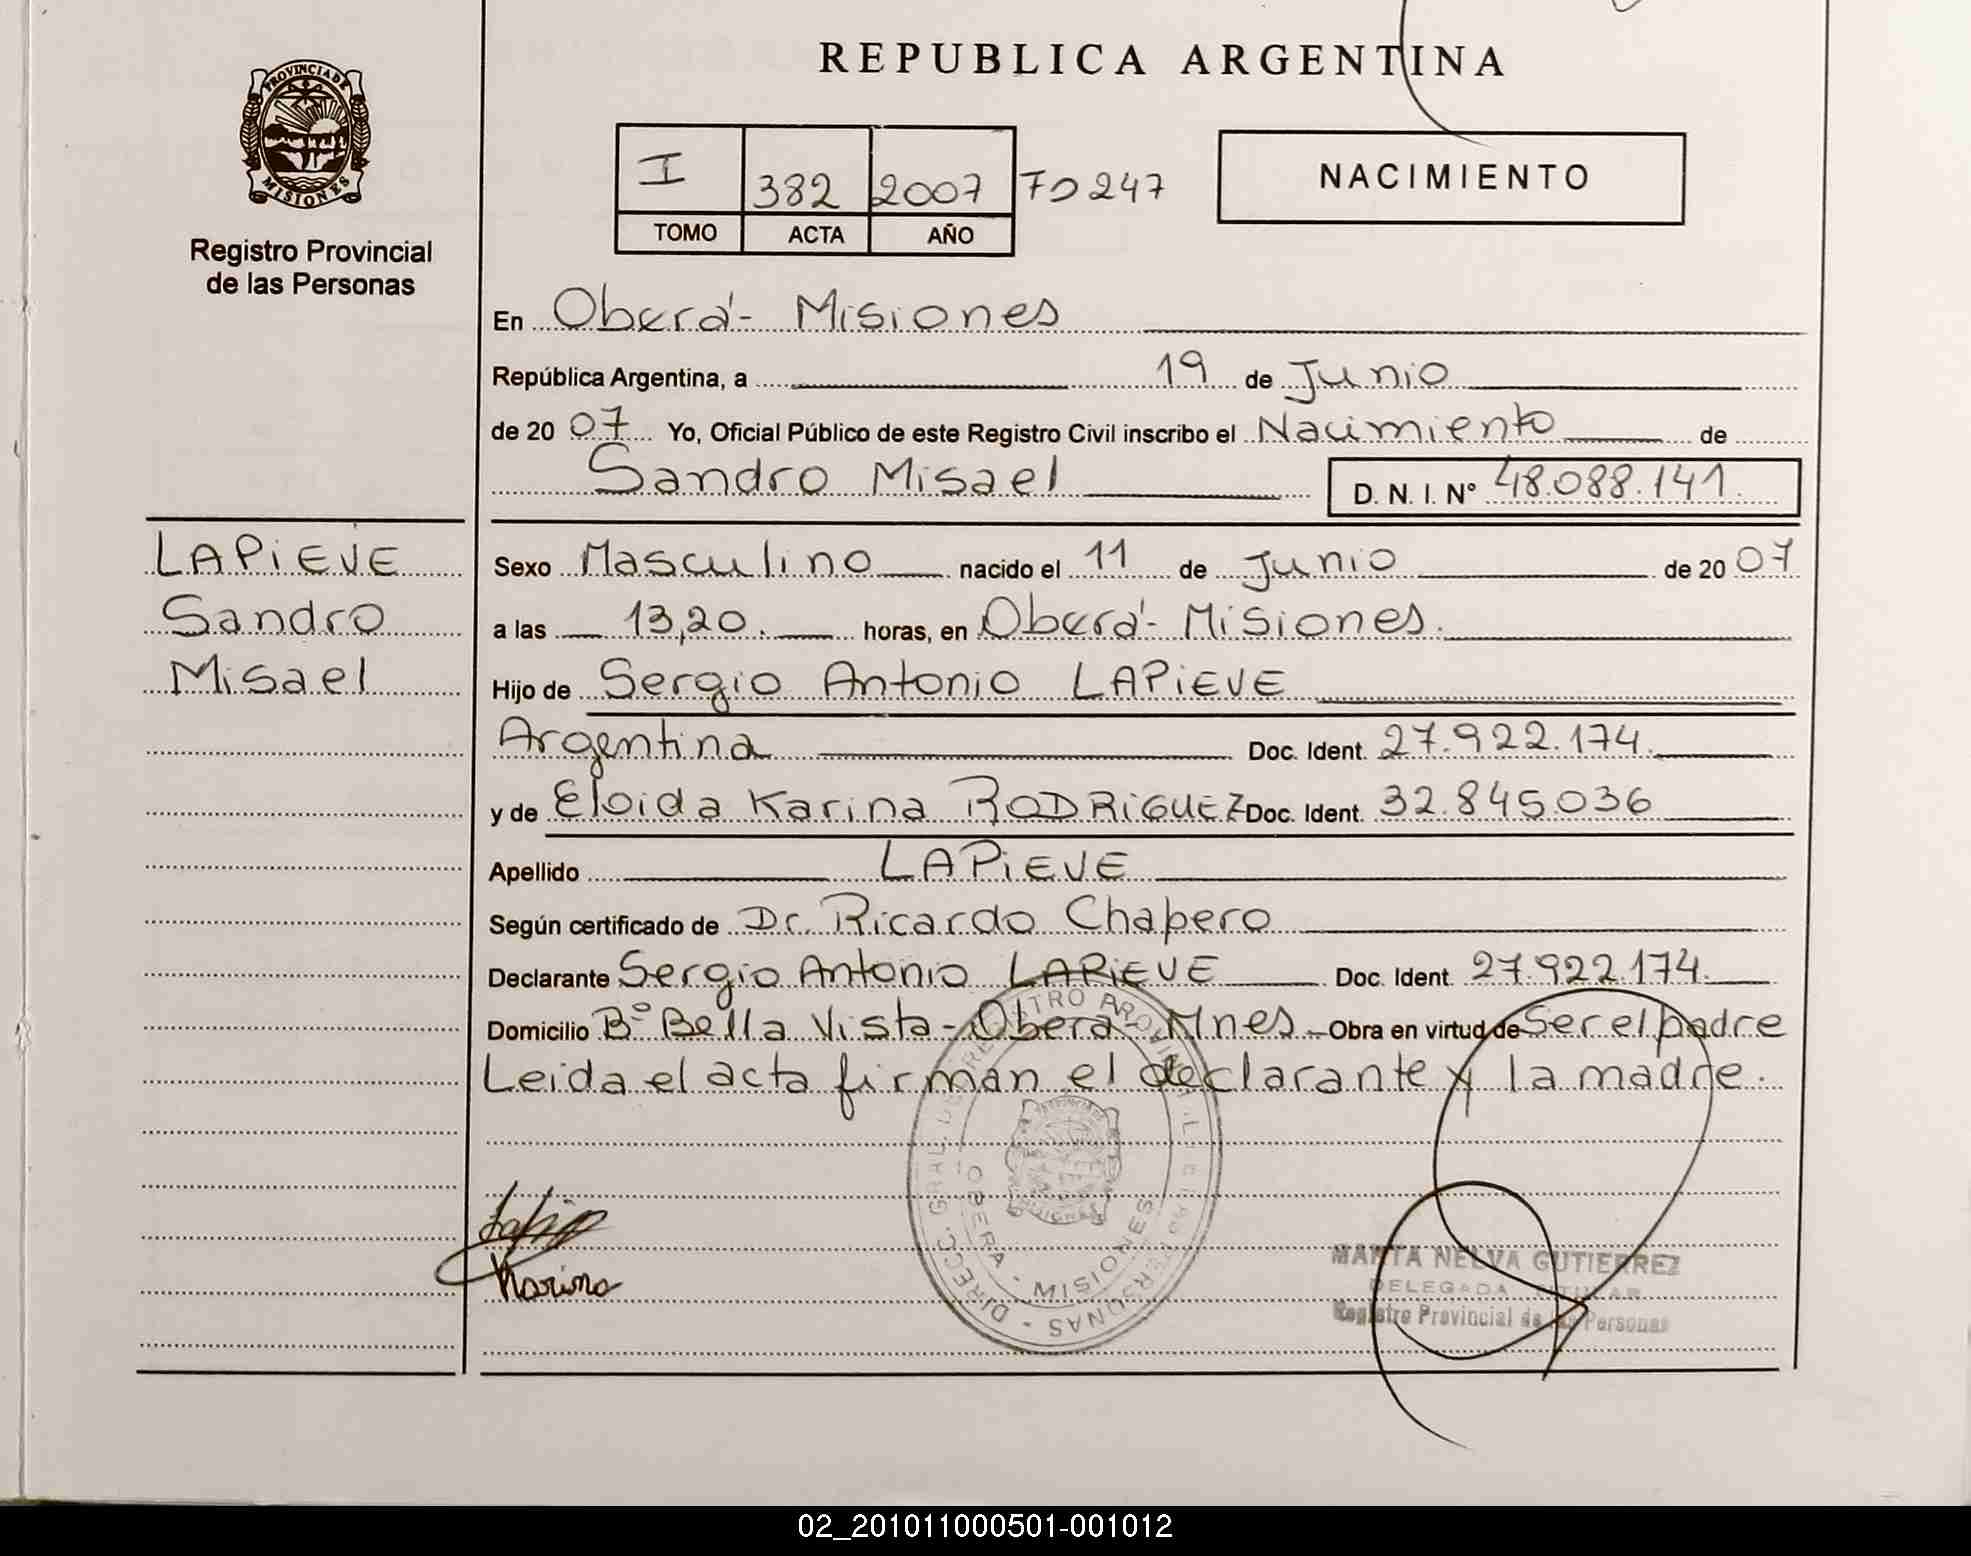 REPUBLICA ARGENTINA
PROVINCIA DE
MISIONES
Registro Provincial
de las Personas
I 382 2007 Fº 247
TOMO ACTA AÑO
NACIMIENTO
En Oberá - Misiones
República Argentina, a 19 de Junio
de 2007 Yo, Oficial Público de este Registro Civil inscribo el Nacimiento de
Sandro Misael D. N. I. Nº 48.088.141.
LAPiEVE
Sandro
Misael
Sexo Masculino nacido el 11 de Junio de 2007
a las 13,20. horas, en Oberá - Misiones.
Hijo de Sergio Antonio LAPiEVE
Argentina Doc. Ident. 27.922.174.
y de Eloida Karina RODRiGUEZ Doc. Ident. 32.845.036
Apellido LAPiEVE
Según certificado de Dr. Ricardo Chapero
Declarante Sergio Antonio LAPiEVE Doc. Ident. 27.922.174.
Domicilio Bº Bella Vista - Oberá - Mnes. Obra en virtud de Ser el padre
Leida el acta firman el declarante y la madre.
DIREC. GRAL. DE REGISTRO PROVINCIAL DE LAS PERSONAS
OBERA - MISIONES
Karina
MARTA NELVA GUTIERREZ
DELEGADA TITULAR
Registro Provincial de las Personas
02_201011000501-001012